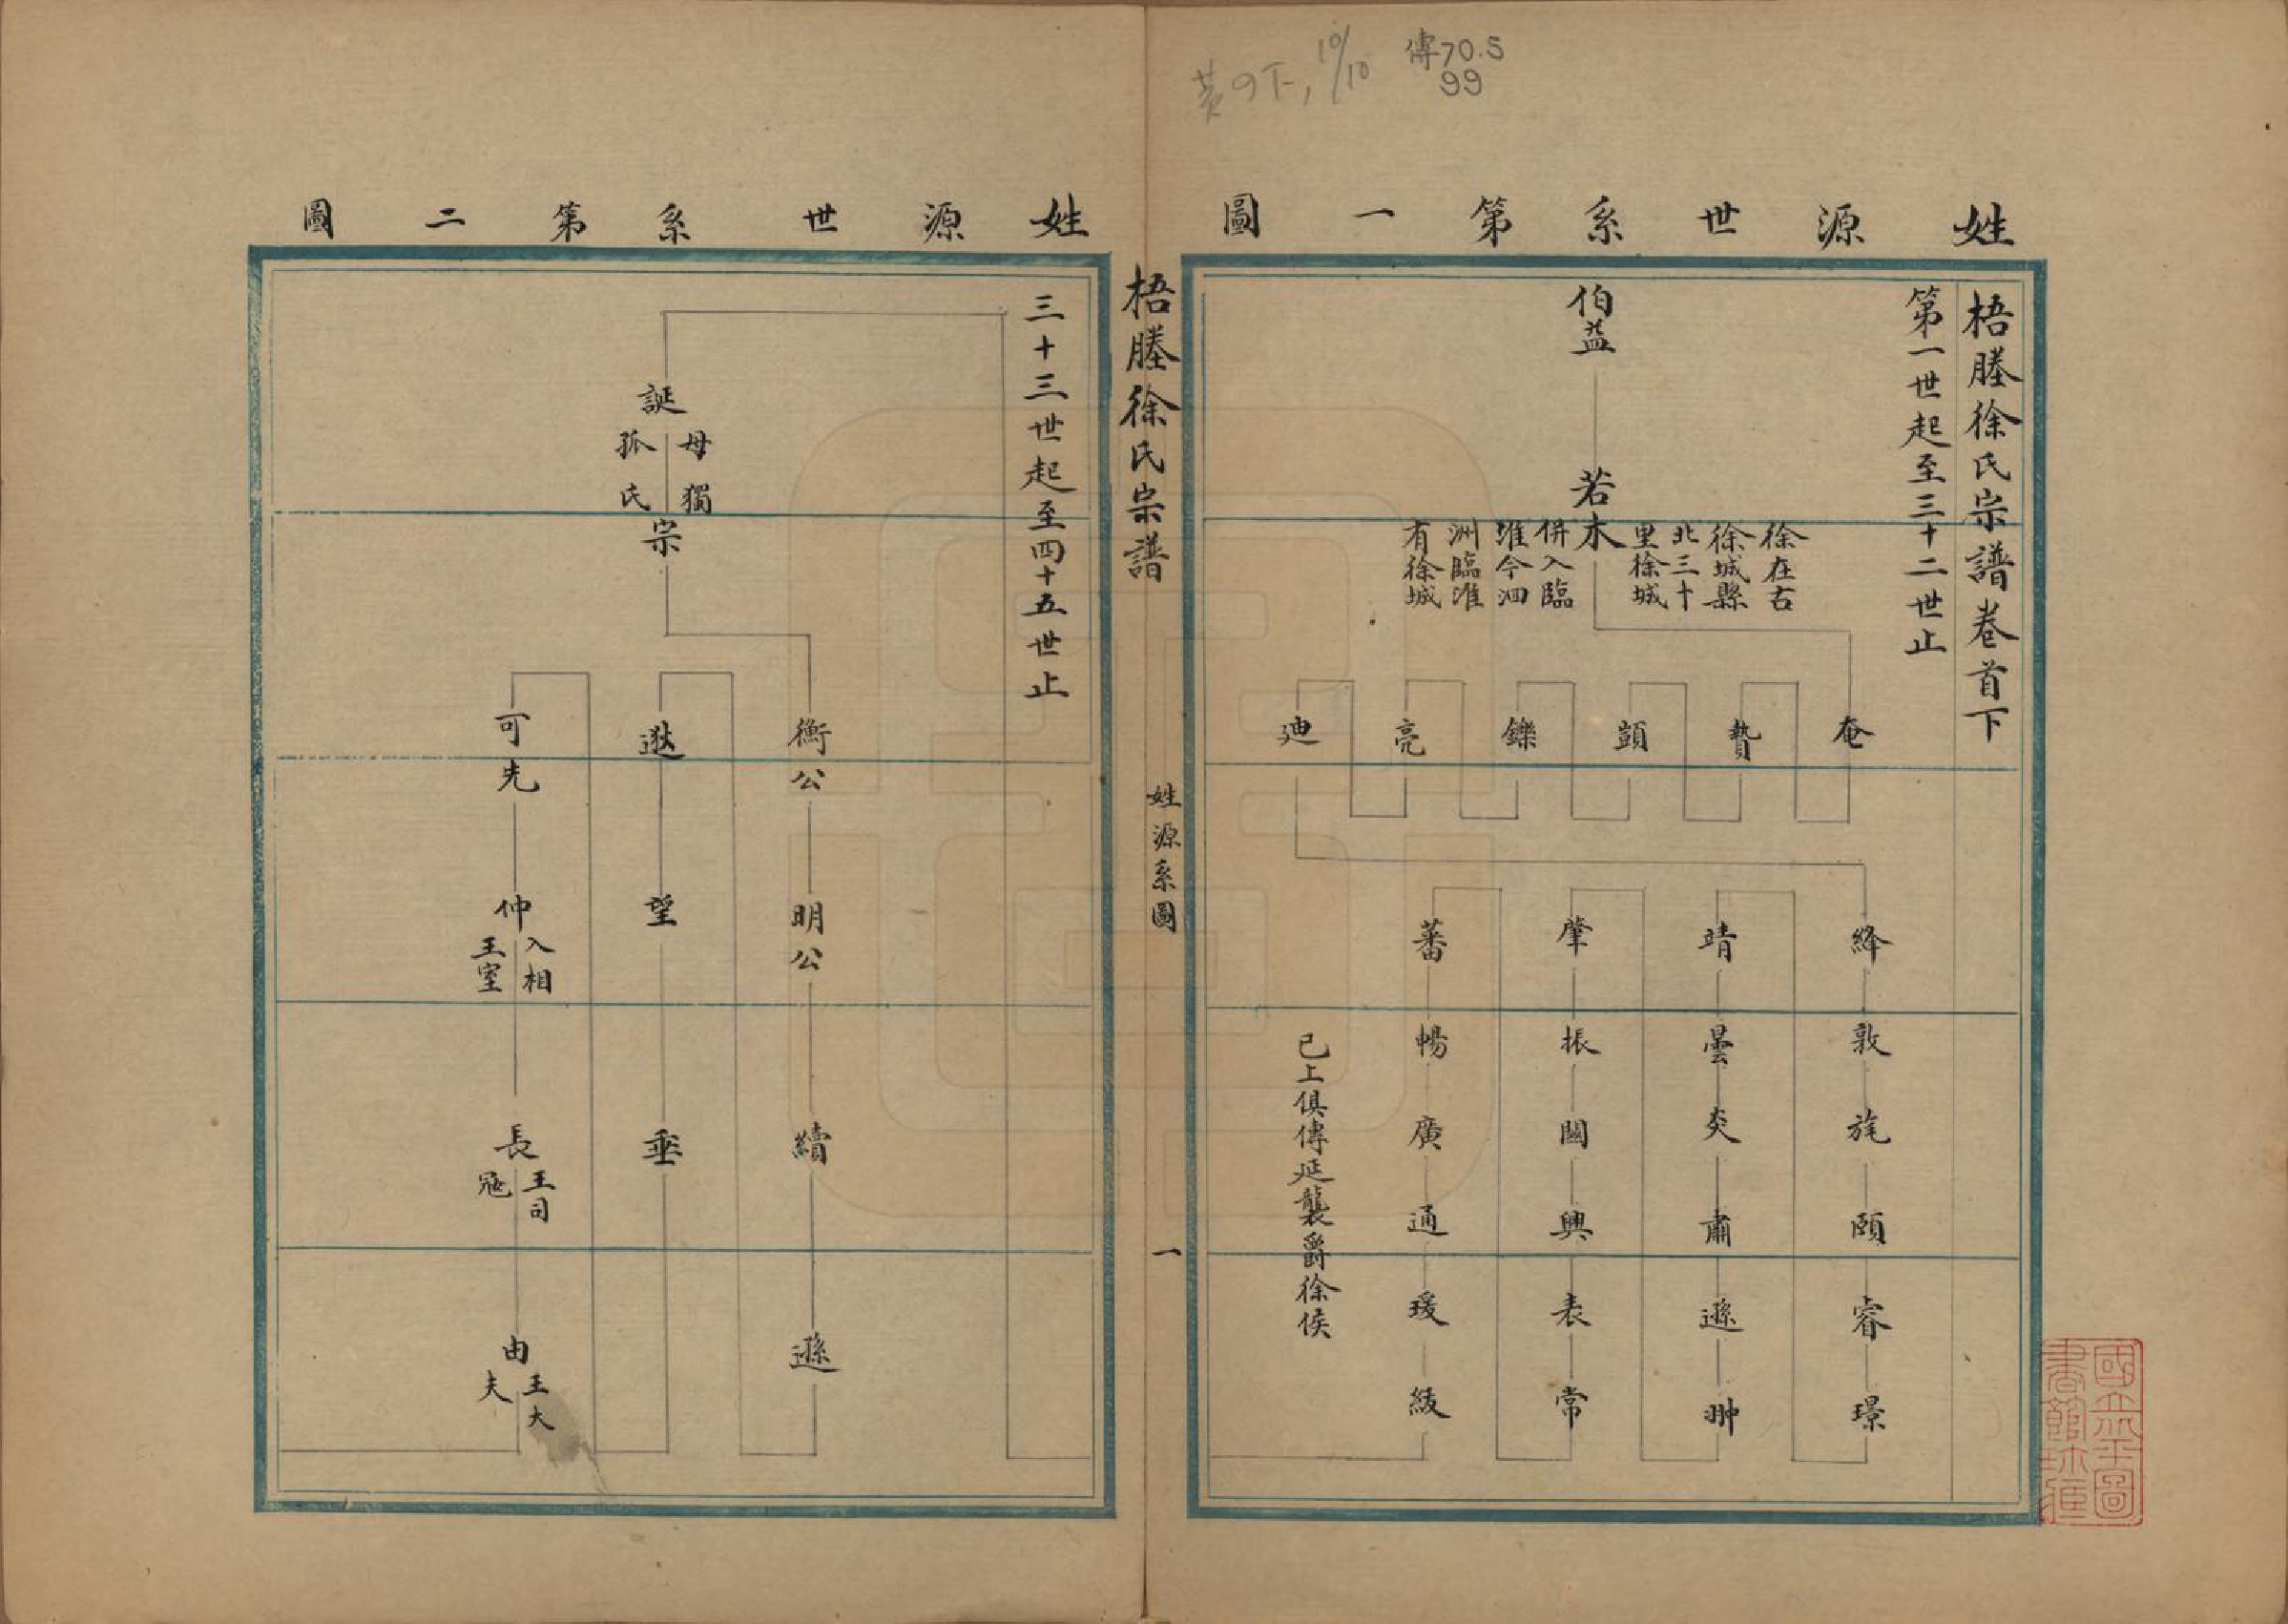 傳70.5
99
10/10
姓源世系第一圖
梧塍徐氏宗譜卷首下
第一世起至三十二世止
伯益
若木
徐在古
徐城縣
北三十
里徐城
併入臨
淮今泗
洲臨淮
有徐城
奄
贄
顗
鑠
亮
迪
絳
敦
旄
頤
睿
璟
靖
曇
炎
肅
遜
翀
肇
振
闓
興
表
常
蕃
暢
廣
通
瑗
綬
已上俱傳延襲爵徐侯
梧塍徐氏宗譜
姓源系圖
一
姓源世系第二圖
三十三世起至四十五世止
誕
母獨
孤氏
宗
衡公
明公
續
遜
逖
望
垂
可先
仲
入相
王室
長
王司
寇
由
王大
夫
國立北平圖
書館珍藏